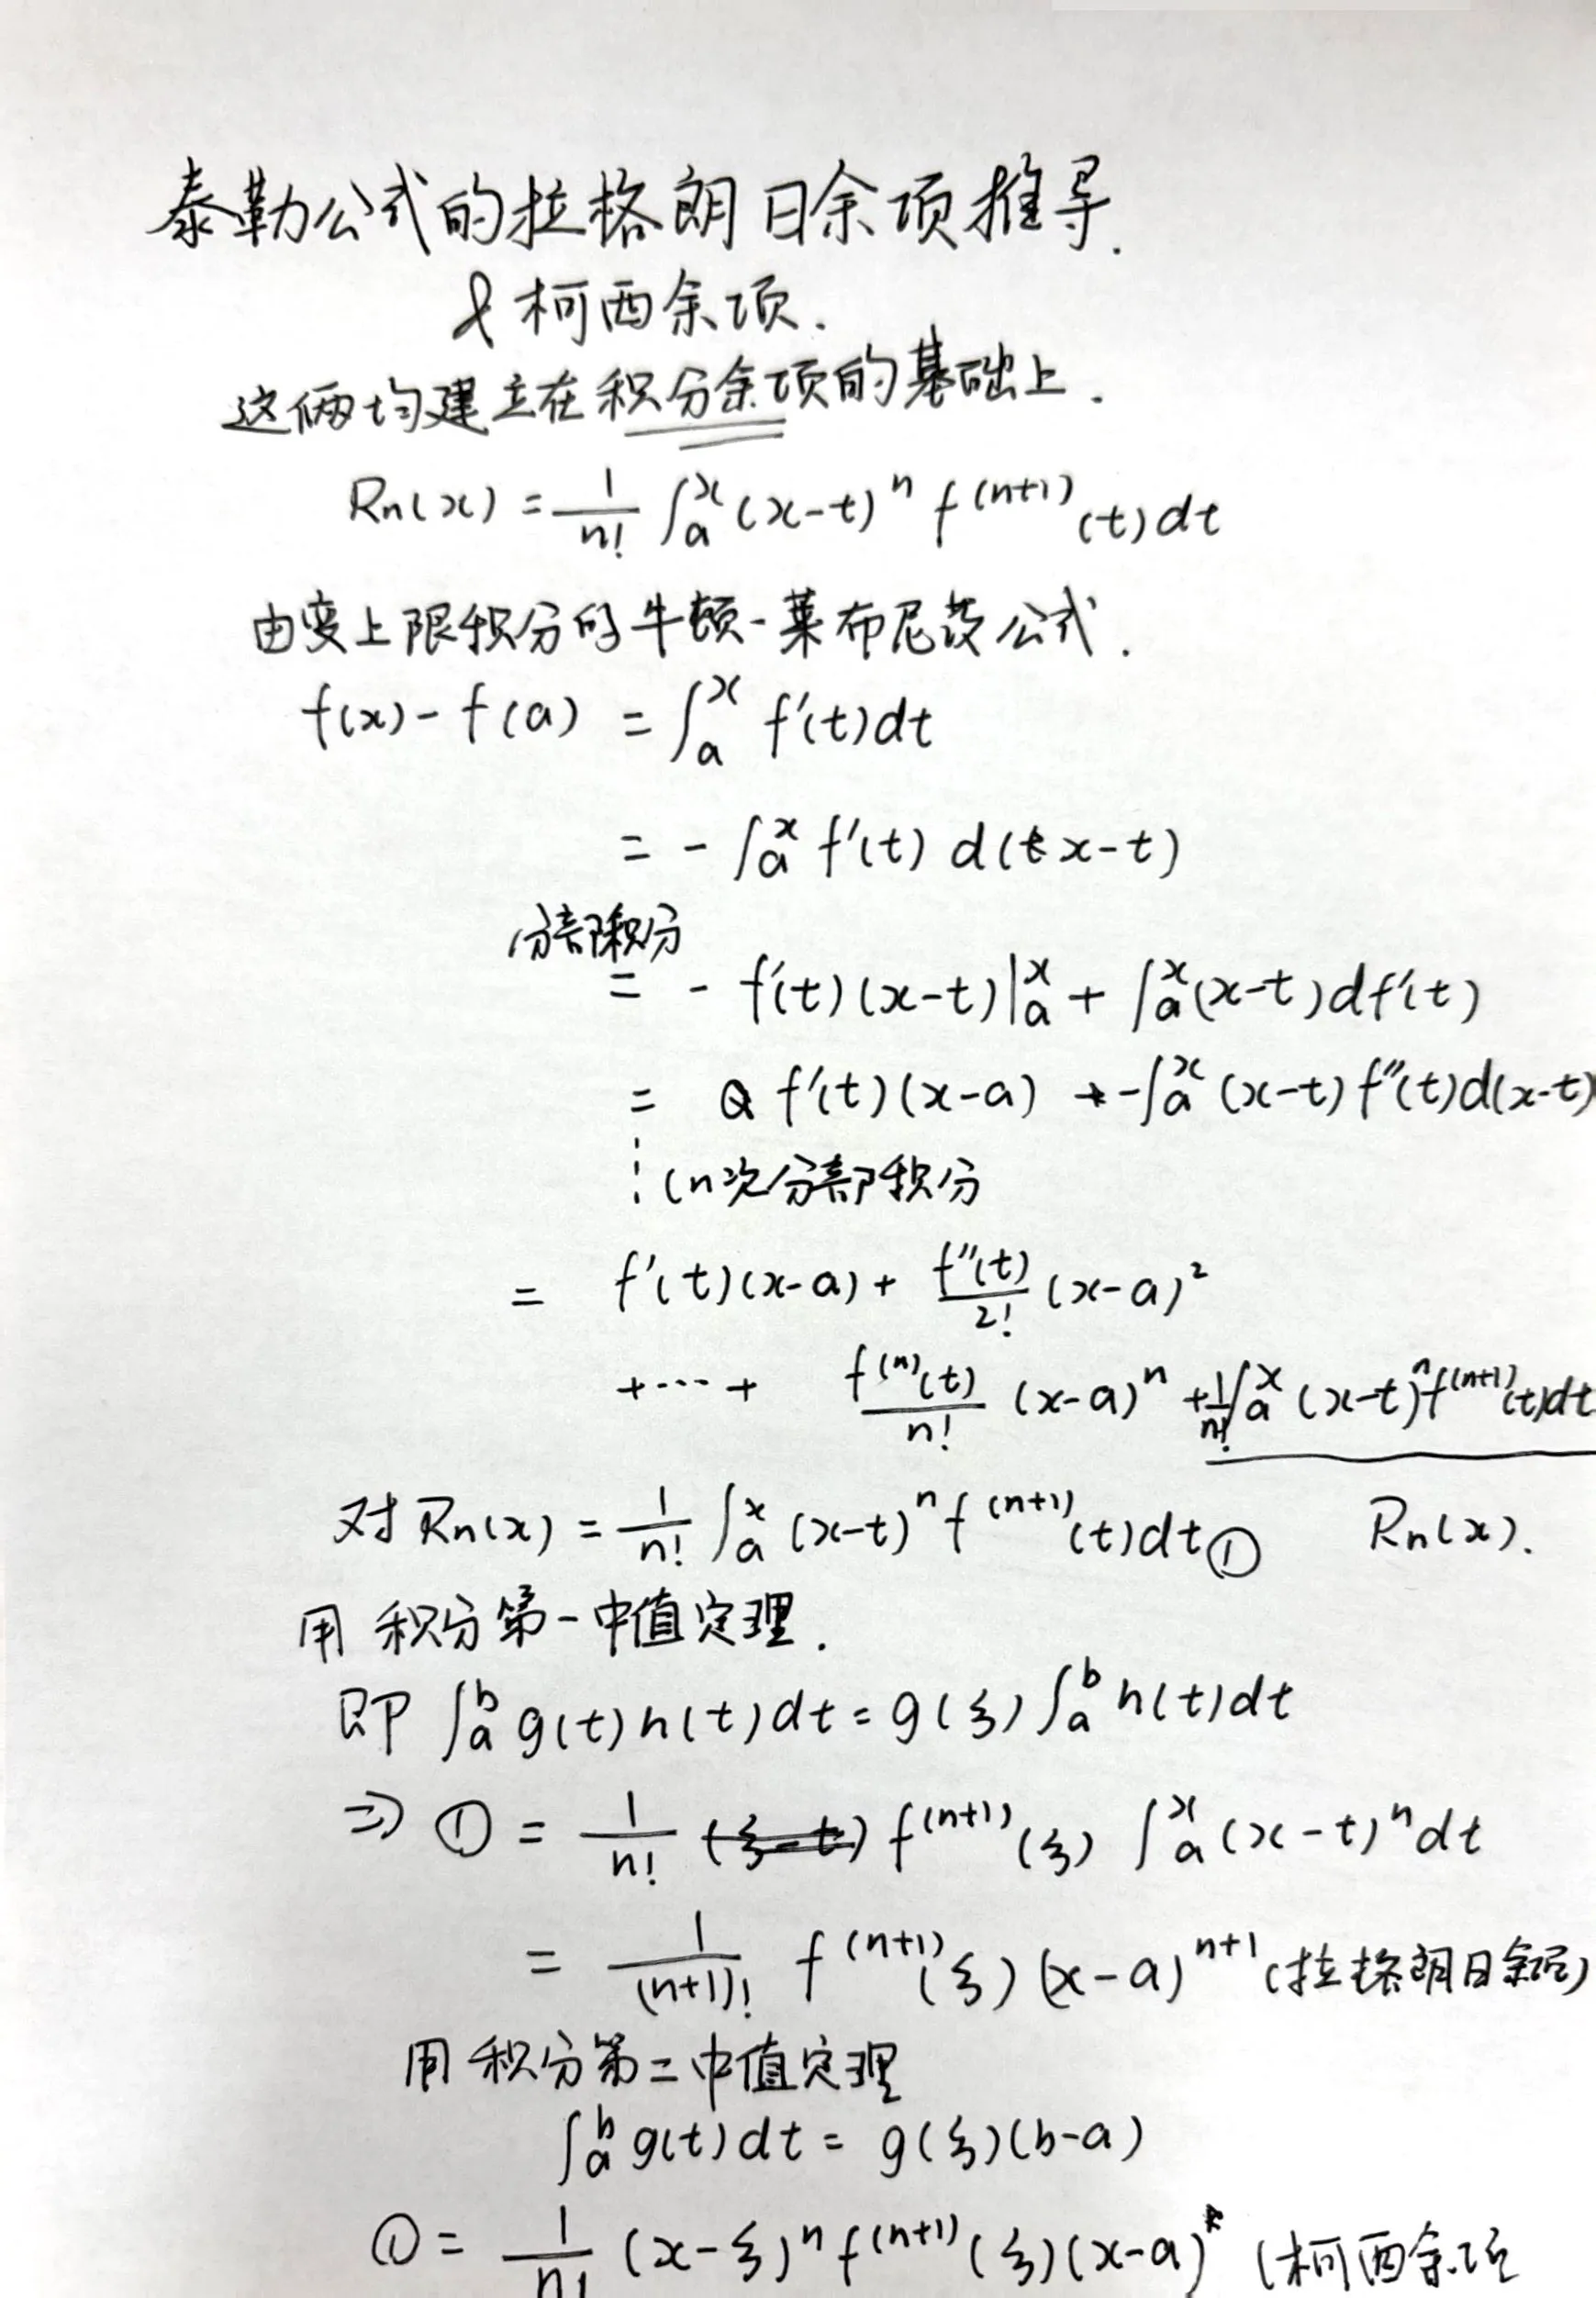 泰勒公式的拉格朗日余项推导.
& 柯西余项.
这俩均建立在积分余项的基础上.
Rn(x) = 1/n! ∫ₐˣ (x-t)ⁿ f⁽ⁿ⁺¹⁾(t)dt
由变上限积分的牛顿-莱布尼茨公式.
f(x) - f(a) = ∫ₐˣ f'(t)dt
= - ∫ₐˣ f'(t) d(x-t)
分部积分
= - f'(t)(x-t)|ₐˣ + ∫ₐˣ(x-t)df'(t)
= f'(t)(x-a) - ∫ₐˣ (x-t)f''(t)d(x-t)
⋮ (n次分部积分
= f'(t)(x-a) + f''(t)/2! (x-a)²
+ ⋯ + f⁽ⁿ⁾(t)/n! (x-a)ⁿ + 1/n! ∫ₐˣ (x-t)ⁿ f⁽ⁿ⁺¹⁾(t)dt
对 Rn(x) = 1/n! ∫ₐˣ (x-t)ⁿ f⁽ⁿ⁺¹⁾(t)dt ① Rn(x).
用 积分第一中值定理.
即 ∫ₐᵇ g(t)h(t)dt = g(ξ) ∫ₐᵇ h(t)dt
⇒ ① = 1/n! f⁽ⁿ⁺¹⁾(ξ) ∫ₐˣ (x-t)ⁿdt
= 1/(n+1)! f⁽ⁿ⁺¹⁾(ξ)(x-a)ⁿ⁺¹ (拉格朗日余项)
用 积分第二中值定理
∫ₐᵇ g(t)dt = g(ξ)(b-a)
① = 1/n! (x-ξ)ⁿ f⁽ⁿ⁺¹⁾(ξ)(x-a) (柯西余项